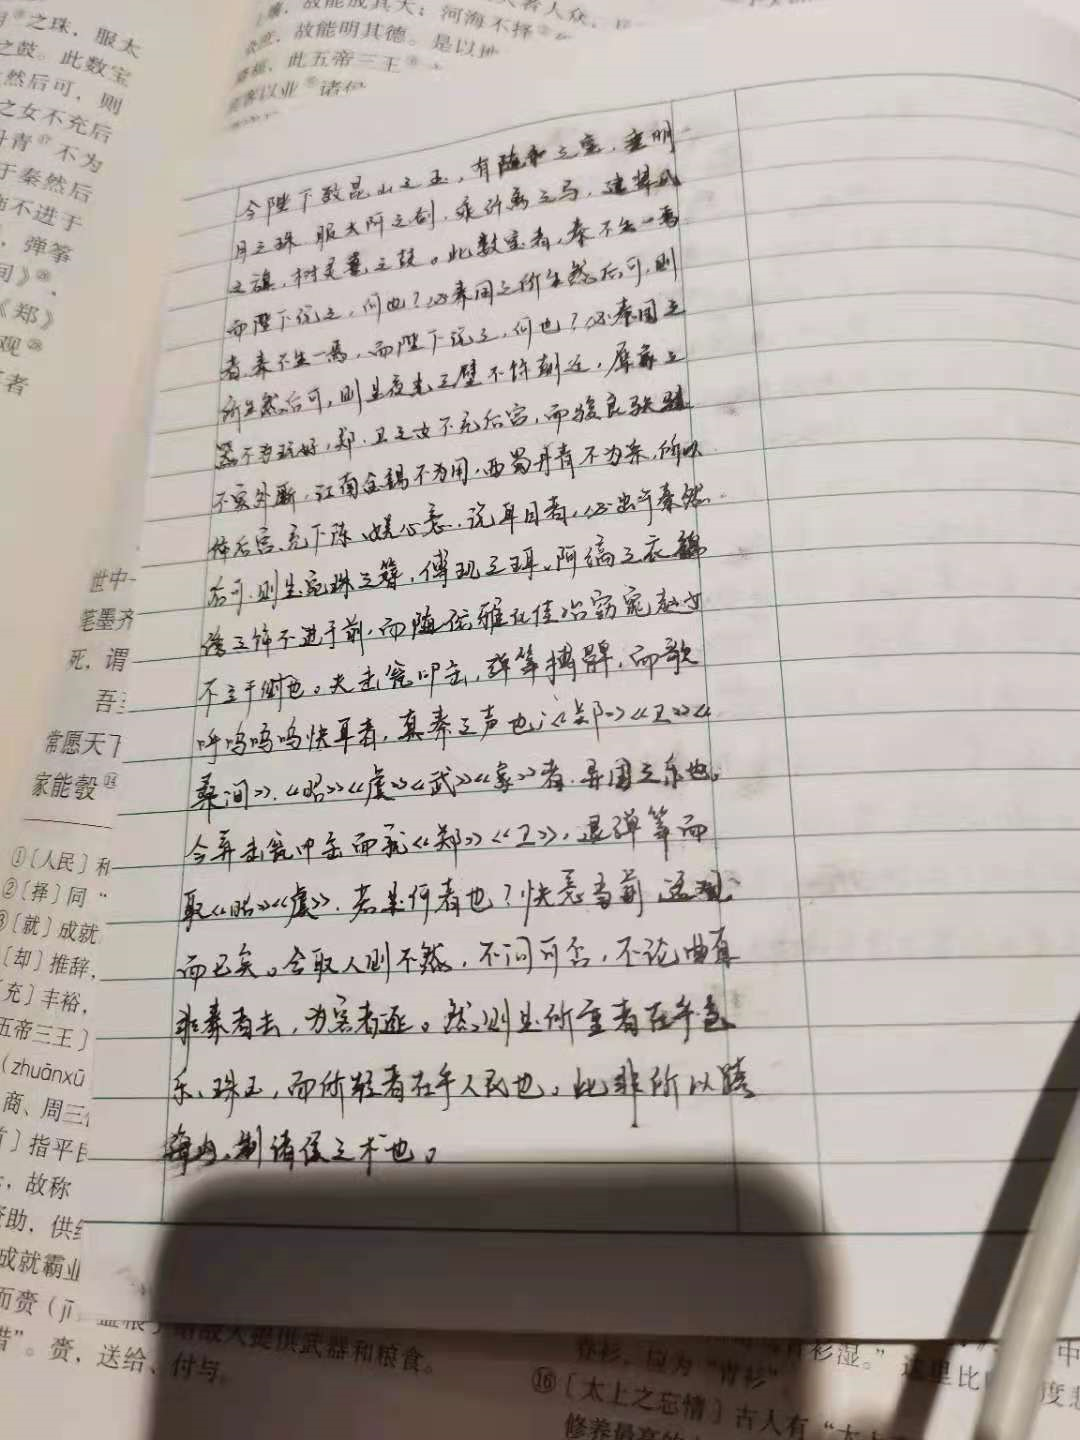 之珠，服太
之鼓。此数宝
然后可，则
之女不充后
丹青⑰不为
于秦然后
而不进于
，弹筝
间》㉖、
《郑》
观㉘
者
，故能成其大；河海不择
故能明其德。是以地
此五帝三王
宾客以业 诸侯
今陛下致昆山之玉，有随和之宝，垂明
月之珠 服太阿之剑，乘纤离之马，建翠凤
之旗，树灵鼍之鼓。此数宝者，秦不生一焉
而陛下说之，何也？必秦国之所生然后可，则
者，秦不生一焉，而陛下说之，何也？必秦国之
所生然后可，则是夜光之璧不饰朝廷，犀象之
器不为玩好，郑、卫之女不充后宫，而骏良駃騠
不实外厩，江南金锡不为用，西蜀丹青不为采，所以
饰后宫、充下陈、娱心意、说耳目者，必出于秦然
后可，则是宛珠之簪，傅玑之珥、阿缟之衣 锦
绣之饰不进于前，而随俗雅化佳冶窈窕赵女
不立于侧也。夫击瓮叩缶，弹筝搏髀，而歌
呼呜呜呜快耳者，真秦之声也；《郑》《卫》《
桑间》、《昭》《虞》《武》《象》者，异国之乐也。
今弃击瓮叩缶而就《郑》《卫》，退弹筝而
取《昭》《虞》，若是何者也？快意当前 适观
而已矣。今取人则不然，不问可否，不论曲直
非秦者去，为客者逐。然则是所重者在乎色
乐、珠玉，而所轻者在乎人民也。此非所以跨
海内、制诸侯之术也。
世中
笔墨齐
死，谓
吾
常愿天下
家能彀⑬
①〔人民〕和
②〔择〕同“
③〔就〕成就
〔却〕推辞，
〔充〕丰裕，
五帝三王〕
（zhuānxū
商、周三
〕指平民
，故称
资助，供给
成就霸业
而赍（jī
借”。赍，送给、付与。
给敌人提供武器和粮食。
春衫，应为“青衫”
青衫湿。”这里比
⑯〔太上之忘情〕古人有“太上
修养最高的